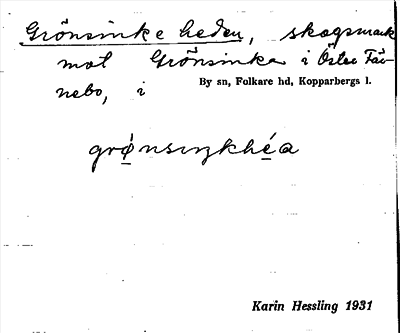 Grönsinke heden, skogsmark
mot Grönsinka i Öster Fär-
nebo, i
By sn, Folkare hd, Kopparbergs l.
grǿnsiŋkhéa
Karin Hessling 1931